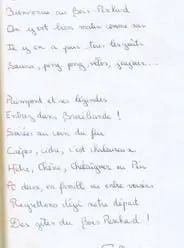 Bienvenue au Bois Peschard
On y est bien matin comme soir
Il y en a pour tous les goûts
Sauna, ping pong, vélos, joujoux...
Paimpont et ses légendes
Entrez dans Brocéliande !
Soirées au coin du feu
Crêpes, cidre, c'est chaleureux
Hêtre, Chêne, Châtaignier ou Pin
A deux, en famille ou entre voisins
Regrettons déjà notre départ
Des gîtes du Bois Peschard !